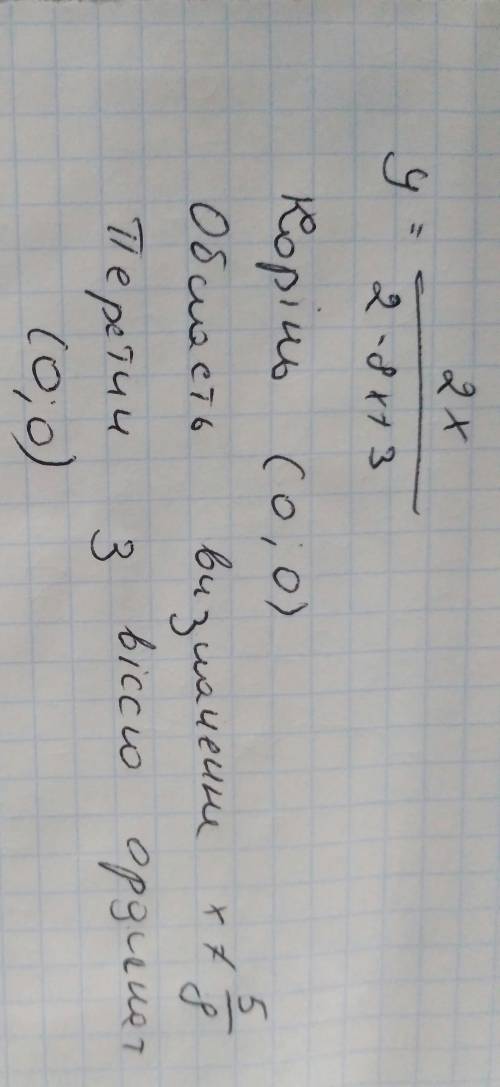 y = 2x / 2 - 8x + 3
Корінь (0; 0)
Область визначення x ≠ 5/8
Перетин з віссю ординат
(0; 0)